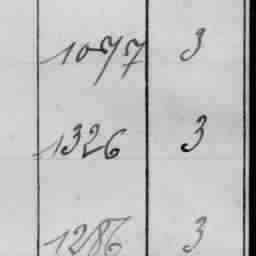 1077 3
1326 3
1286 3